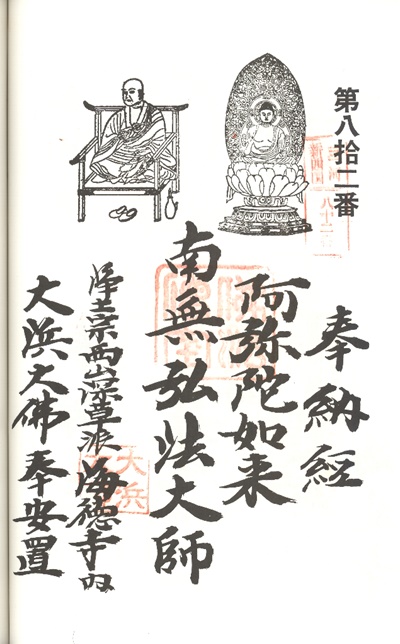 第八拾二番
奉納経
阿弥陀如来
南無弘法大師
浄土宗西山深草派海徳寺内
大浜大佛奉安置
大浜